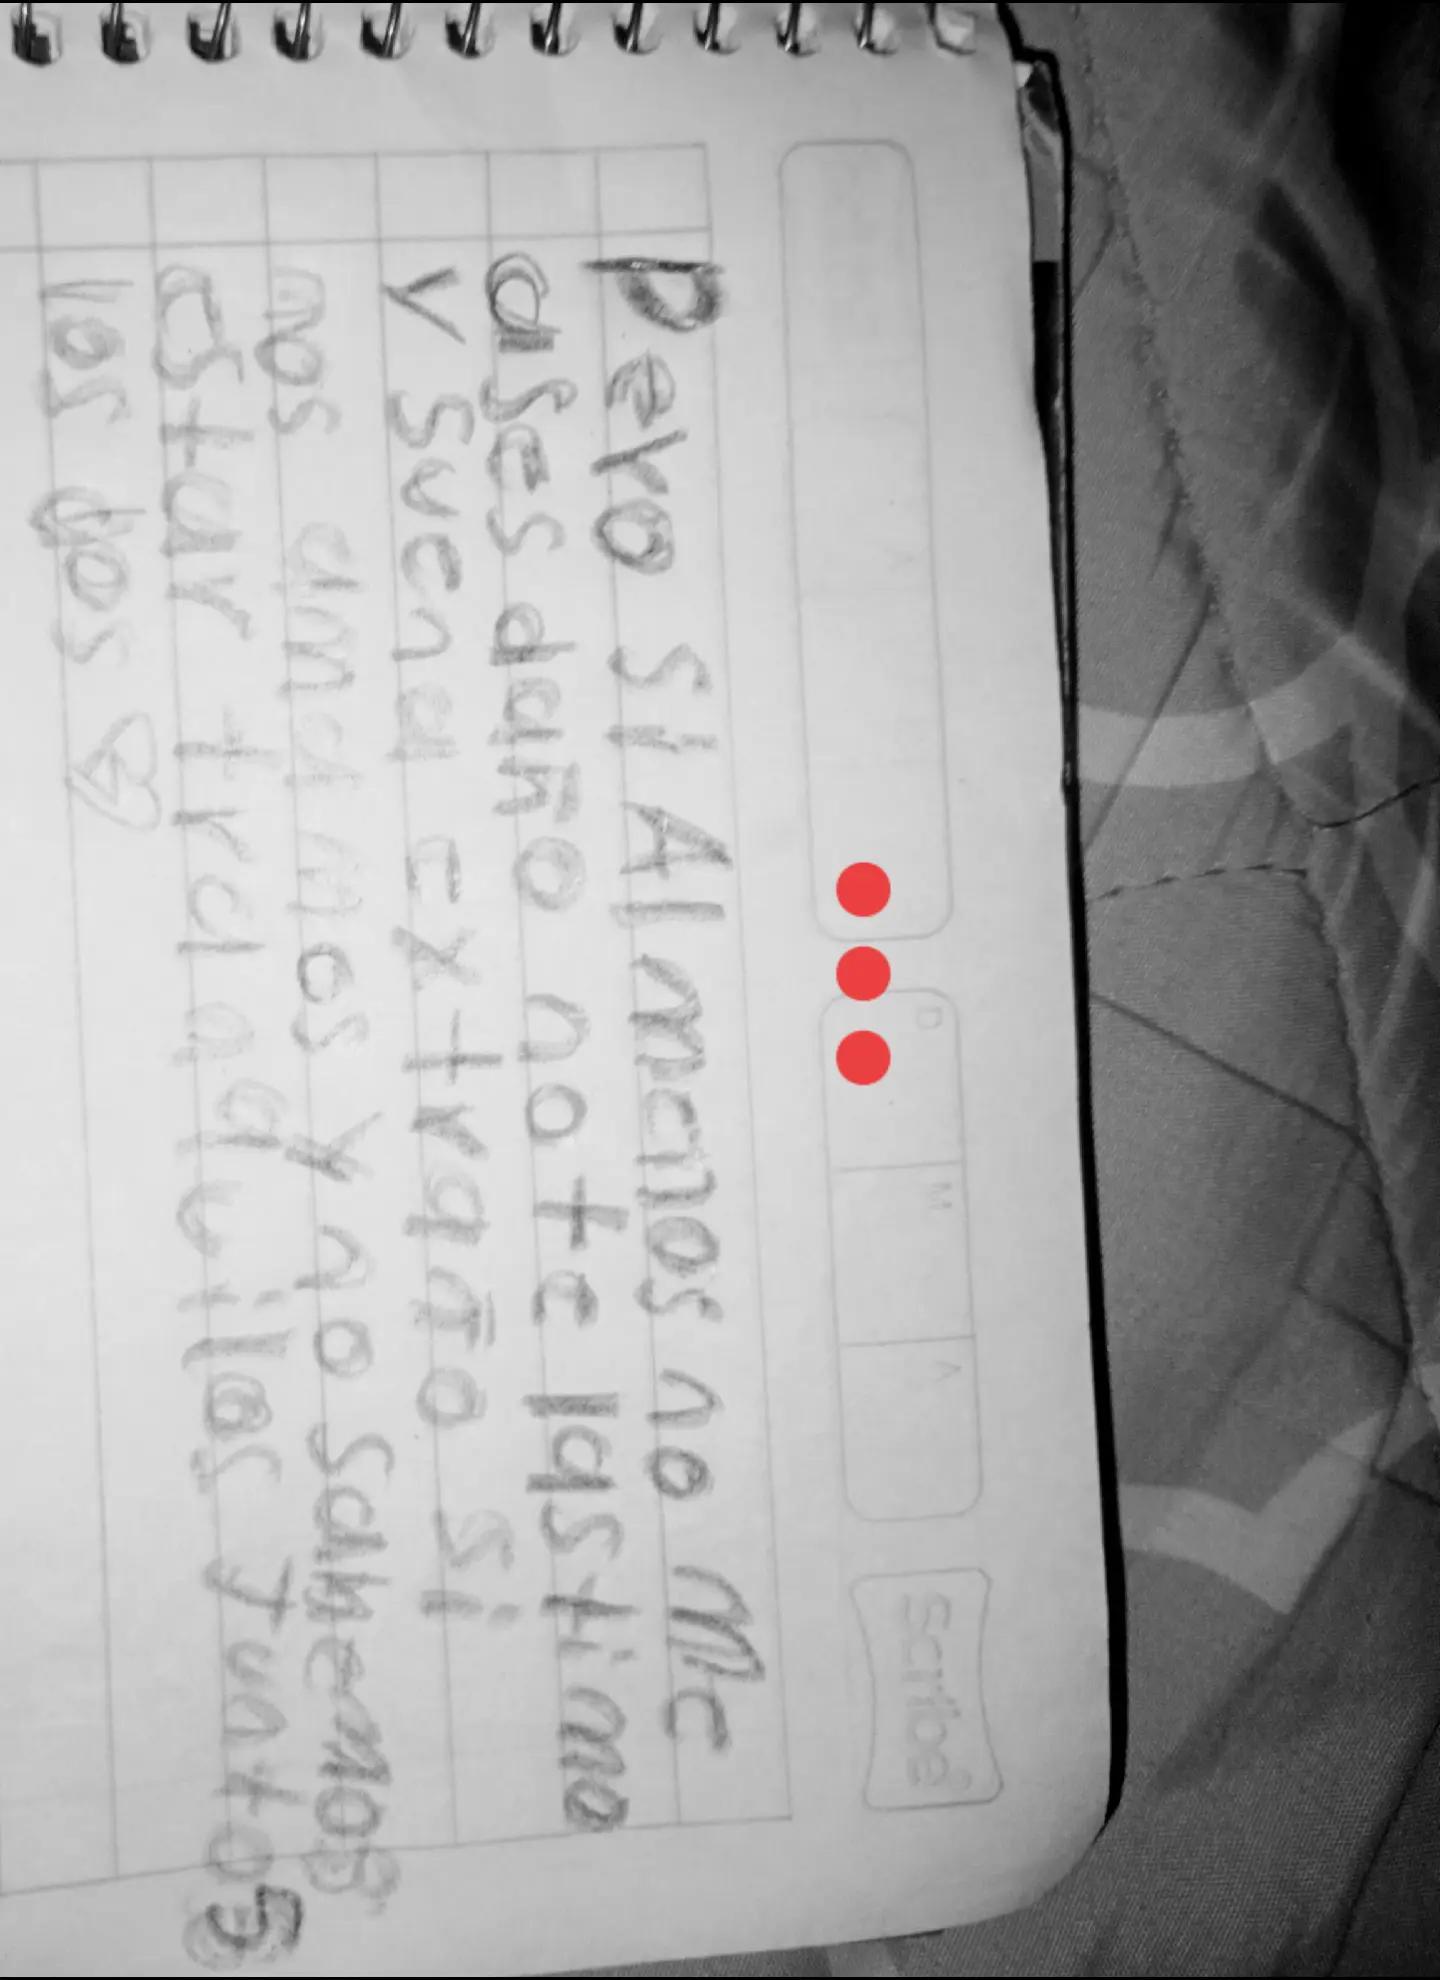 D M A
Scribe
Pero si Almenos no me
ases daño no te lastimo
y suena extraño si
nos amamos y no sabemos
estar tranquilos juntos
los dos